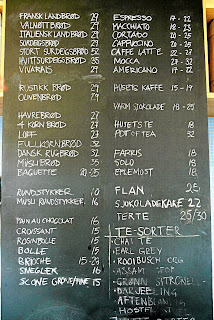 FRANSK LANDBRØD 29
VALNØTTBRØD 29
ITALIENSK LANDBRØD 29
SURDEIGSBRØD 29
STORT SURDEIGSBRØD 32
HVITT SURDEIGSBRØD 35
VIVARAIS 29
RUSTIKK BRØD 29
OLIVENBRØD 29
HAVREBRØD 29
4 KORN BRØD 29
LOFF 27
FULLKORNBRØD 32
DANSK RUGBRØD 32
MUSLIBRØD 35
BAGUETTE 20-25
RUNDSTYKKER 10
MÜSLI RUNDSTYKKER 16
PAIN AU CHOCOLAT 16
CROISSANT 15
ROSINBOLLE 15
BOLLE 15
BRIOCHE 15-29
SNEGLER 16
SCONE GROVE/FINE 15
ESPRESSO 17 - 22
MACCHIATO 18 - 23
CORTADO 20 - 25
CAPPUCCINO 20 - 25
CAFFE LATTE 22 - 27
MOCCA 27 - 32
AMERICANO 17 - 22
HUSETS KAFFE 15 - 19
VARM SJOKOLADE 18 - 25
HUSETS TE 18
POT OF TEA 32
FARRIS 18
SOLO 18
EPLEMOST 18
FLAN 25
SJOKOLADEKAKE 22
TERTE 25/30
TE-SORTER
- CHAI TE
- EARL GREY
- ROOIBUSCH ORG
- ASSAM
- GRØNN SITRONELL
- DARJEELING
- AFTENBLAN